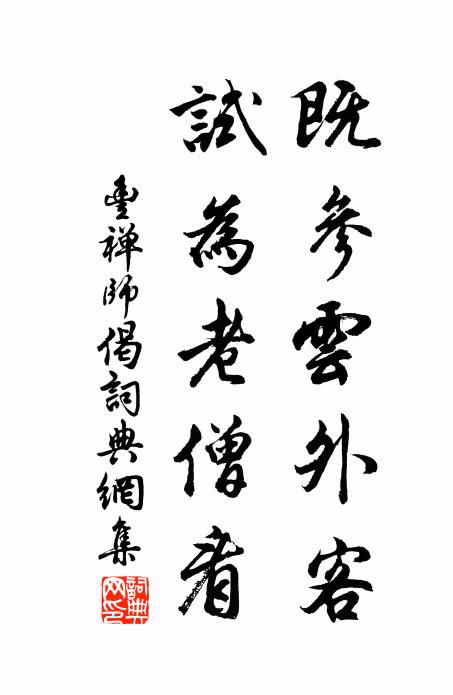 既參雲外客
試為老僧看
豊禅師偈詞典網集
詞典网印